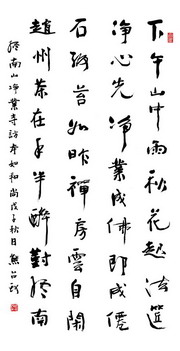 下午山中雨秋花起法筵
净心先净業成佛即成僊
石級苔如昨禪房雲自閑
趙州茶在手半醉對終南
終南山净業寺訪本如和尚戊子秋日熊召政